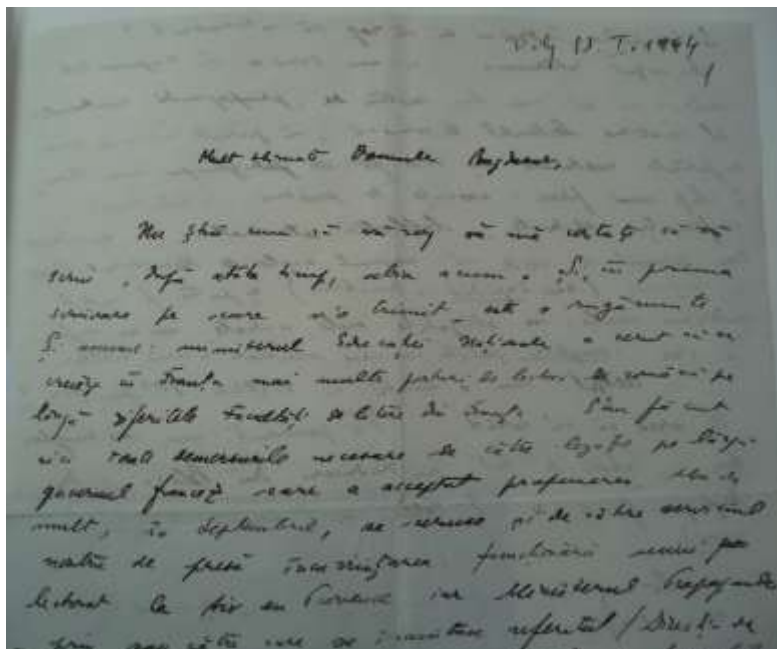 Vichy 13.I.1944
Mult stimate Domnule
Nu știu cum să vă rog să mă iertați că vă
scriu, după atâta timp, abia acum. Și, în prima
scrisoare pe care v'o trimit, este o rugăminte
Ș anume: ministerul Educației Naționale a cerut să se
creeze în Franța mai multe posturi de lectori de română pe
lângă diferitele Facultăți de litere din Franța. S'au făcut
aici toate demersurile necesare de către legație pe lângă
guvernul francez care a acceptat propunerea
mult, în Septembrie, se ceruse și de către serviciul
nostru de presă încuviințarea funcționării unui
lectorat la Aix en Provence iar Ministerul Propagandei
prin care se înaintase referatul / Direcția